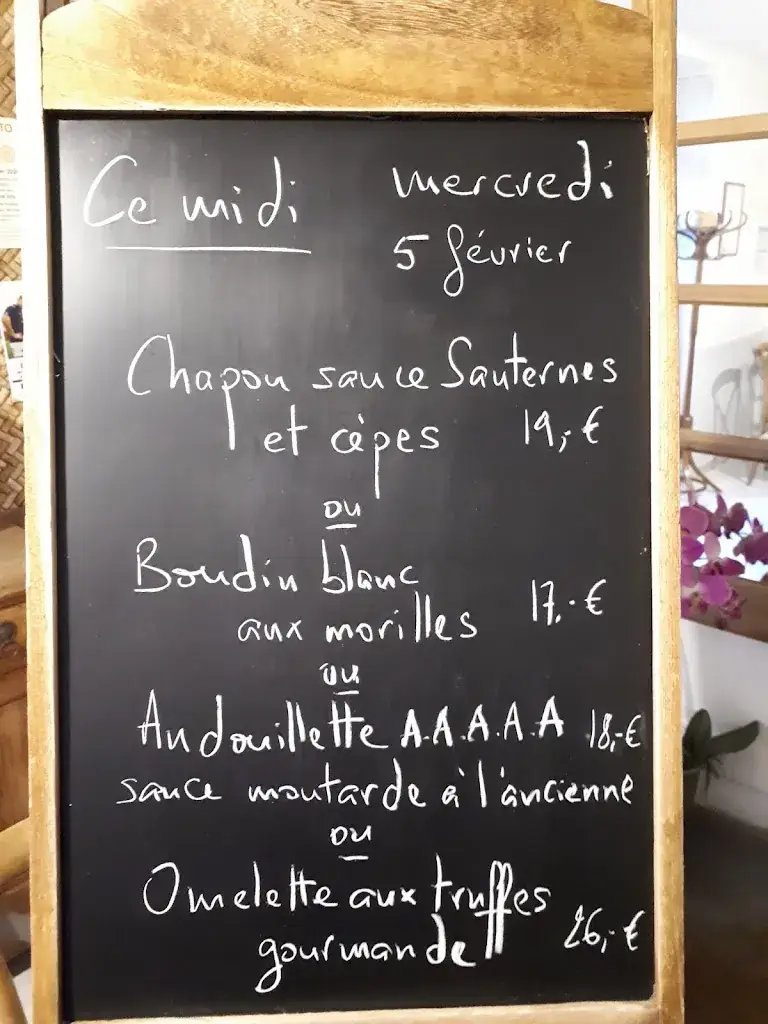 Ce midi
mercredi
5 février
Chapon sauce Sauternes
et cèpes 19,- €
ou
Boudin blanc
aux morilles 17.- €
ou
Andouillette A.A.A.A.A 18,- €
sauce moutarde à l'ancienne
ou
Omelette aux truffes
gourmande 26,- €